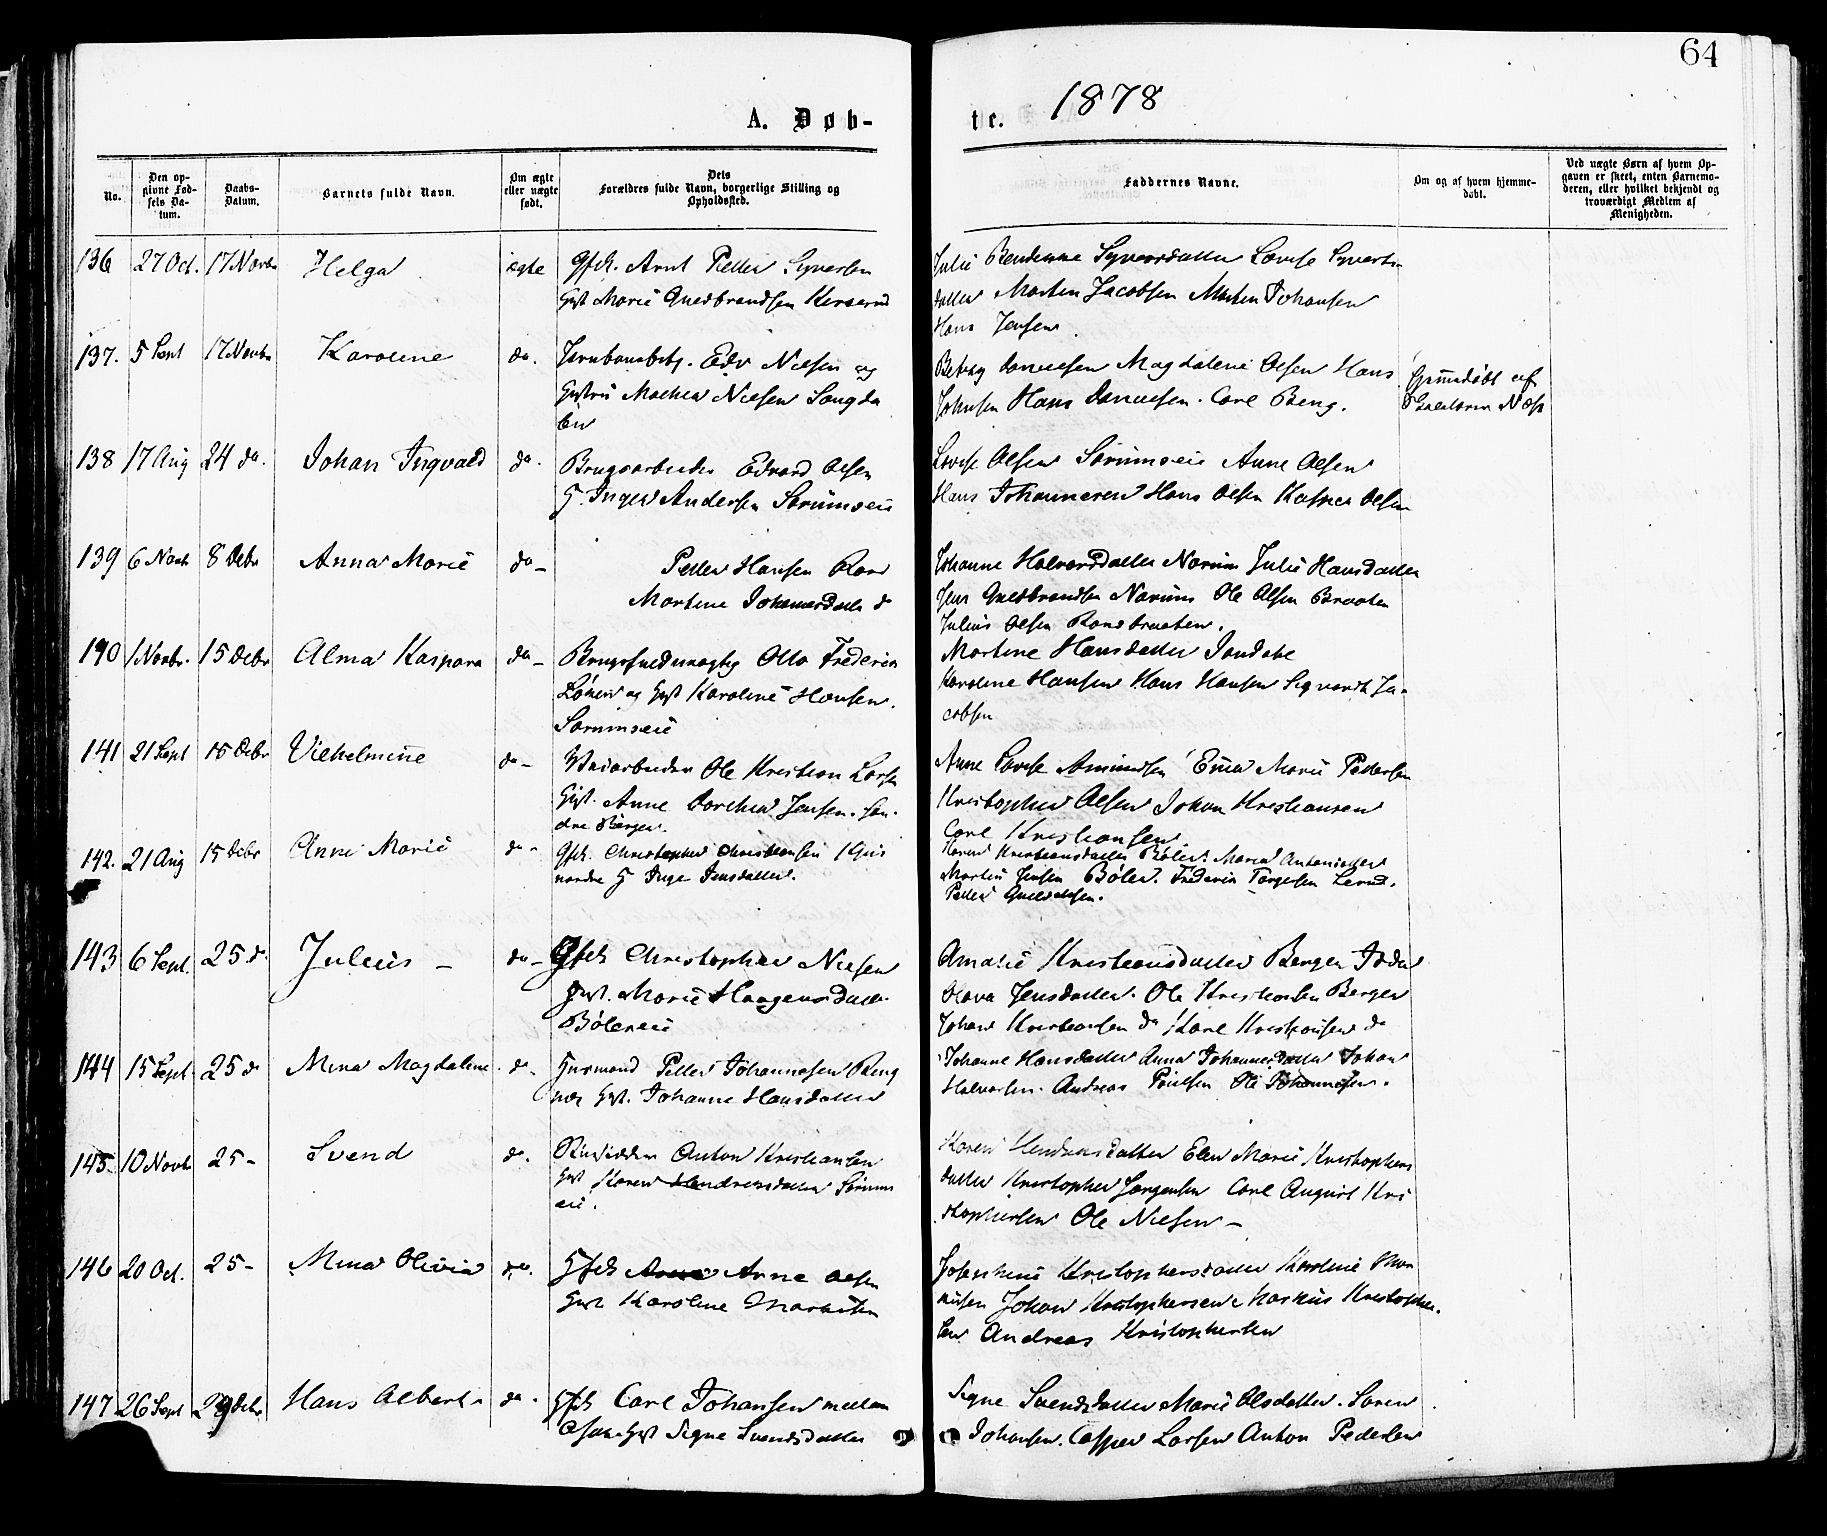 64
1878
A. Døb-
te.
No.
Den op-
givne Fød-
sels Da-
tum.
Daabs-
Datum.
Barnets fulde Navn.
Om ægte
eller uægte
født.
Dets
Forældres fulde Navn, borgerlige Stilling og
Opholdssted.
Faddernes Navne.
Om og af hvem hjemme-
døbt.
Ved uægte Børn af hvem Op-
gaven er skeet, enten Barnemo-
deren, eller hvilket bekjendt og
troværdigt Medlem af
Menigheden.
136 27 Oct. 17 Novbr Helga ægte Gfsk. Arnt Petter Syversen
Gust Marie Guldbrandsen
Julie Syversdatter Lovise Syverts-
datter Morten Jacobsen Morten Johansen
Hans Jensen.
137. 5 Sept 17 Novbr Karoline do. Jernbanebetj. Edv Nilsen og
Hustru Mathea Nilsen
Danielsen Magdalene Olsen Hans
Johnsen Hans Danielsen. Carl Berg.
Hjemmedøbt af
138 17 Aug 24 do. Johan Ingvald do. Brugsarbeider Edvard Olsen
G. Inger Andersen Sørumseie
Lovise Olsen Sørumseie Anne Olsen
Hans Johannesen Hans Olsen Kasper Olsen
139 6 Novb 8 Debr Anna Marie do- Petter Hansen
Martine Johannesdatter d
Johanne Halvorsdatter Norum Julie Hansdatter
Jens Guldbrandsen Norum Ole Olsen Braaten
Julius Olsen
140 1 Novbr. 15 Debr Alma Kaspara do- Brugsfuldmægtig Otto Frederik
og Gust Karoline Hansen.
Sørumseie
Martine Hansdatter
Karoline Hansen Hans Hansen Sigvardt Ja-
cobsen
141 21 Sept 15 Debr Vilhelmine do- Ole Kristian Larsen
Gust. Anne Dorthea Jensen. Søn-
dre Berger.
Anne Lovise Amundsen Emma Marie Pettersen
Kristopher Olsen Johan Kristiansen
Carl Kristiansen
142. 21 Aug 15 Debr Anne Marie do- Gfsk. Christopher Christiansen
nordre G Inge Jensdatter.
Karen Kristiansdatter Bøler. Maren
Martin Jensen Bøler. Frederik Torgersen
Petter
143 6 Sept. 25 d. Julius - do- Gfsk Christopher Nilsen
Gust. Marie Haagensdatter
Bølereie
Amalie Kristiansdatter Berger
Olava Jensdatter. Ole Kristiansen Berger
Johan Kristiansen do Karl Kristiansen do
144 15 Sept 25 d Mina Magdalene. do- Gurmand Petter Johannesen
Gust. Johanne Hansdatter
Johanne Hansdatter Anna Johannesdatter Johan
Halvorsen. Andreas Paulsen Ole Johannesen.
145. 10 Novb 25 - Svend do. Anton Kristiansen
Gust Karen Hendriksdatter Sørums
eie.
Karen Hendriksdatter Elen Marie Kristophers
datter Kristopher Jørgensen Carl August Kri
stophersen Ole Nilsen -
146 20 Oct. 25 - Mina Olivia do. Gfsk Arne Olsen
Gust Karoline
Josephine Kristophersdatter Karoline
Johan Kristophersen Markus Kristopher-
sen Andreas Kristophersen
147 26 Sept 29 Debr Hans Albert - do. Gfsk Carl Johansen mellem
Gust Signe Svendsdatter
Signe Svendsdatter Marie Olsdatter. Søren
Johansen. Casper Larsen Anton Pedersen